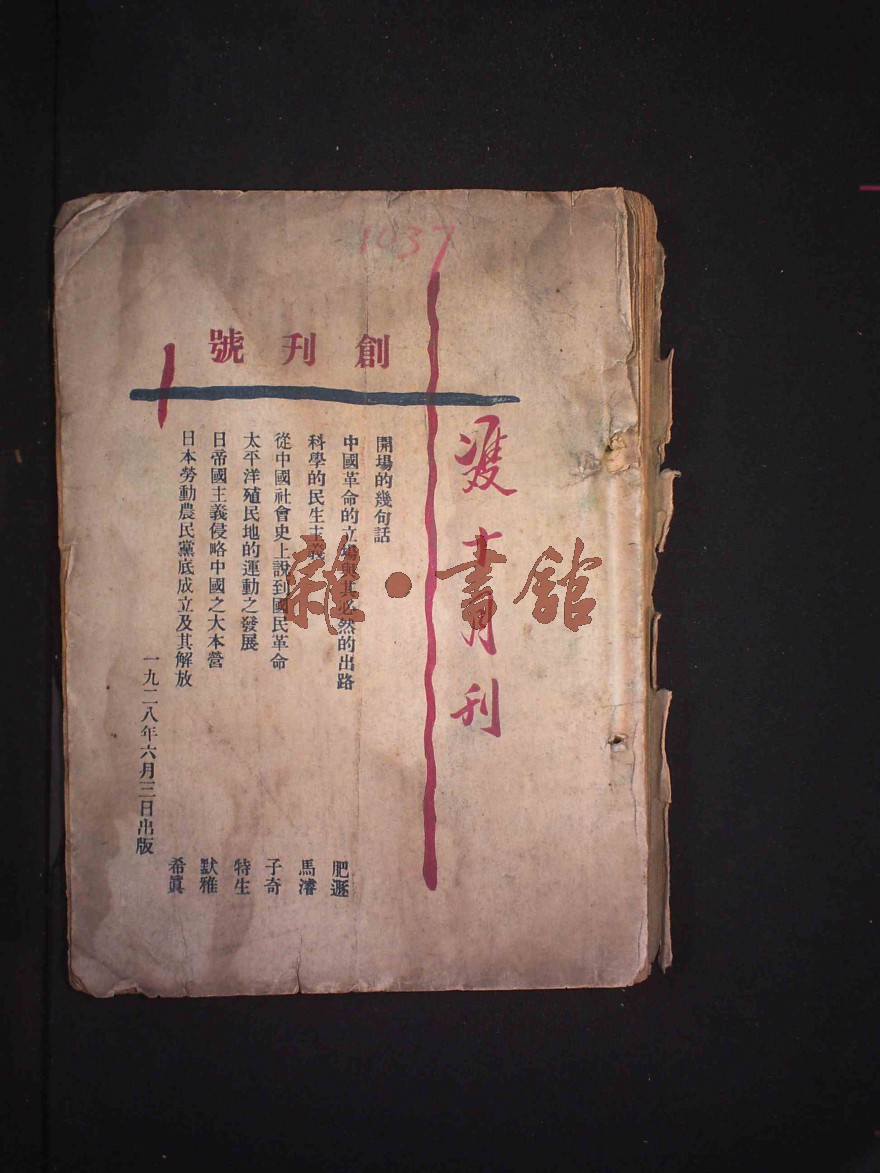 1037
創刊號
雙十月刊
開場的幾句話
中國革命的立場與其必然的出路 肥遯
科學的民生主義 馬濬
從中國社會史上說到國民革命 子奇
太平洋殖民地的運動之發展 特生
日帝國主義侵略中國之大本營 默雅
日本勞動農民黨底成立及其解放 希眞
一九二八年六月三日出版
雜·書館